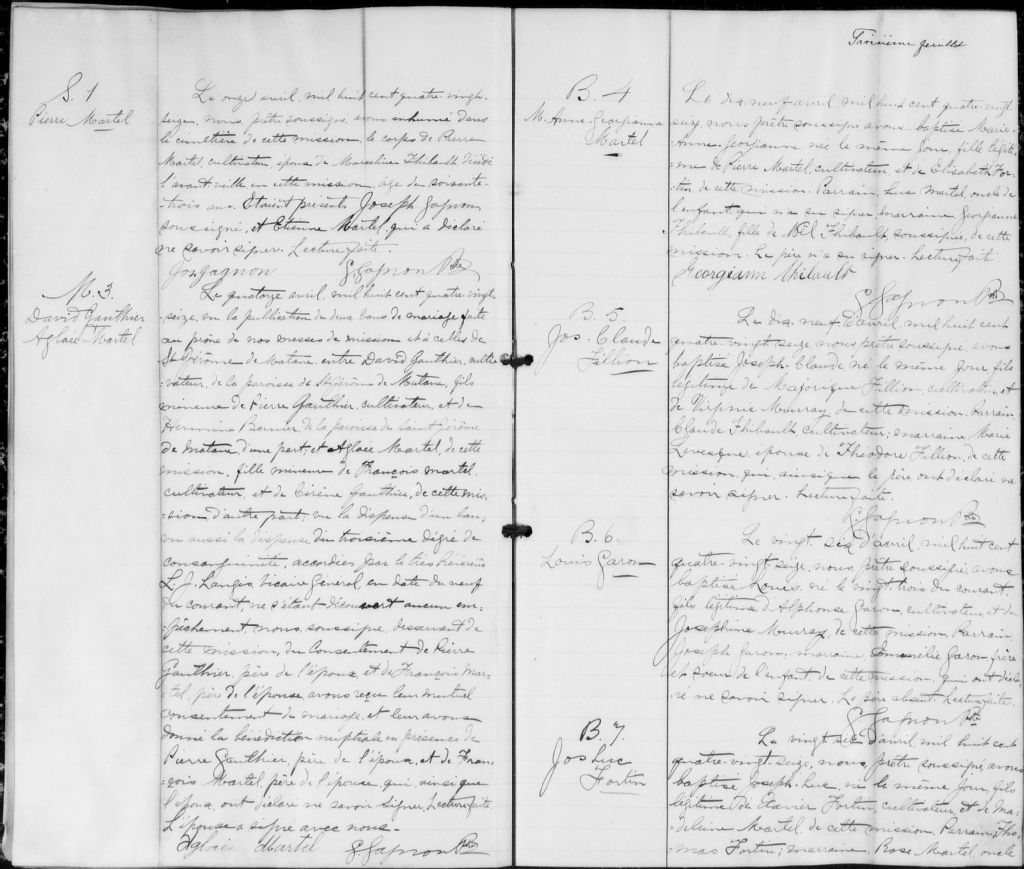 Troisième feuillet
S. 1
Pierre Martel
Le onze avril, mil huit cent quatre-vingt-
seize, nous, prêtre soussigné, avons inhumé dans
le cimetière de cette mission, le corps de Pierre
Martel, cultivateur, époux de Marceline Thibault, décédé
l'avant veille en cette mission, âgé de soixante-
-trois ans. Etaient présents Joseph Gagnon,
soussigné, et Etienne Martel, qui a déclaré
ne savoir signer. Lecture faite.
Jos Gagnon G. Gagnon Ptre
M. 3.
David Gauthier
Aglaée Martel
Le quatorze avril, mil huit cent quatre-vingt-
-seize, vu la publication de deux bans de mariage faite
au prône de nos messes de mission et à celles de
St Jérôme de Matane, entre David Gauthier, culti-
-vateur, de la paroisse de St Jérôme de Matane, fils
mineur de Pierre Gauthier, cultivateur, et de
Hermine Bernier, de la paroisse de Saint Jérôme
de Matane, d'une part; et Aglaée Martel, de cette
mission, fille mineure de François Martel,
cultivateur, et de Cirène Gauthier, de cette mis-
-sion d'autre part; vu la dispense d'un ban;
vu aussi la dispense du troisième degré de
consanguinité, accordées par le très Révérend
L. J. Langis, vicaire Général en date du neuf
du courant, ne s'étant découvert aucun em-
-pêchement, nous, soussigné, desservant de
cette mission, du consentement de Pierre
Gauthier, père de l'époux, et de François Mar-
tel, père de l'épouse, avons reçu leur mutuel
consentement de mariage, et leur avons
donné la bénédiction nuptiale en présence de
Pierre Gauthier, père de l'époux, et de Fran-
çois Martel, père de l'épouse, qui, ainsi que
l'époux, ont déclaré ne savoir signer. Lecture faite.
L'épouse a signé avec nous.
Aglaée Martel G. Gagnon Ptre
B. 4
M. Anne. Georgianna
Martel
Le dix-neuf avril, mil huit cent quatre-vingt
seize, nous prêtre soussigné avons baptisé Marie-
-Anne-Georgianna, née le même jour, fille légiti-
me de Pierre Martel, cultivateur, et de Elisabeth For-
tin, de cette mission. Parrain, Luc Martel, oncle de
l'enfant, qui n'a su signer, marraine, Georgianna
Thibault, fille de Noël Thibault, soussignée, de cette
mission. Le père n'a su signer. Lecture faite.
Georgianna Thibault
G. Gagnon Ptre
B. 5
Jos. Claude
Fillion
Le dix-neuf d'avril, mil huit cent
quatre-vingt seize nous, prêtre soussigné, avons
baptisé Joseph-Claude né le même jour, fils
légitime de Majorique Fillion, cultivateur, et
de Virginie Murray, de cette mission. Parrain
Claude Thibault, cultivateur; marraine, Marie
Levesque, épouse de Théodore Fillion, de cette
mission, qui, ainsi que le père, ont déclaré ne
savoir signer. Lecture faite.
G. Gagnon Ptre
B. 6.
Louis Garon
Le vingt-six d'avril, mil huit cent
quatre-vingt seize, nous, prêtre soussigné, avons
baptisé Louis, né le vingt-trois du courant,
fils légitime d'Alphonse Garon, cultivateur, et de
Joséphine Murray, de cette mission. Parrain,
Joseph Garon, marraine, Emmélie Garon, frère
et soeur de l'enfant, de cette mission, qui ont décla-
ré ne savoir signer. Le père absent. Lecture faite.
G. Gagnon Ptre
B. 7.
Jos Luc
Fortin
Le vingt-six d'avril, mil huit cent
quatre-vingt-seize, nous, prêtre soussigné, avons
baptisé Joseph-Luc, né le même jour, fils
légitime de Xavier Fortin, cultivateur, et de Ma-
deleine Martel, de cette mission. Parrain, Tho-
-mas Fortin; marraine, Rose Martel, oncle